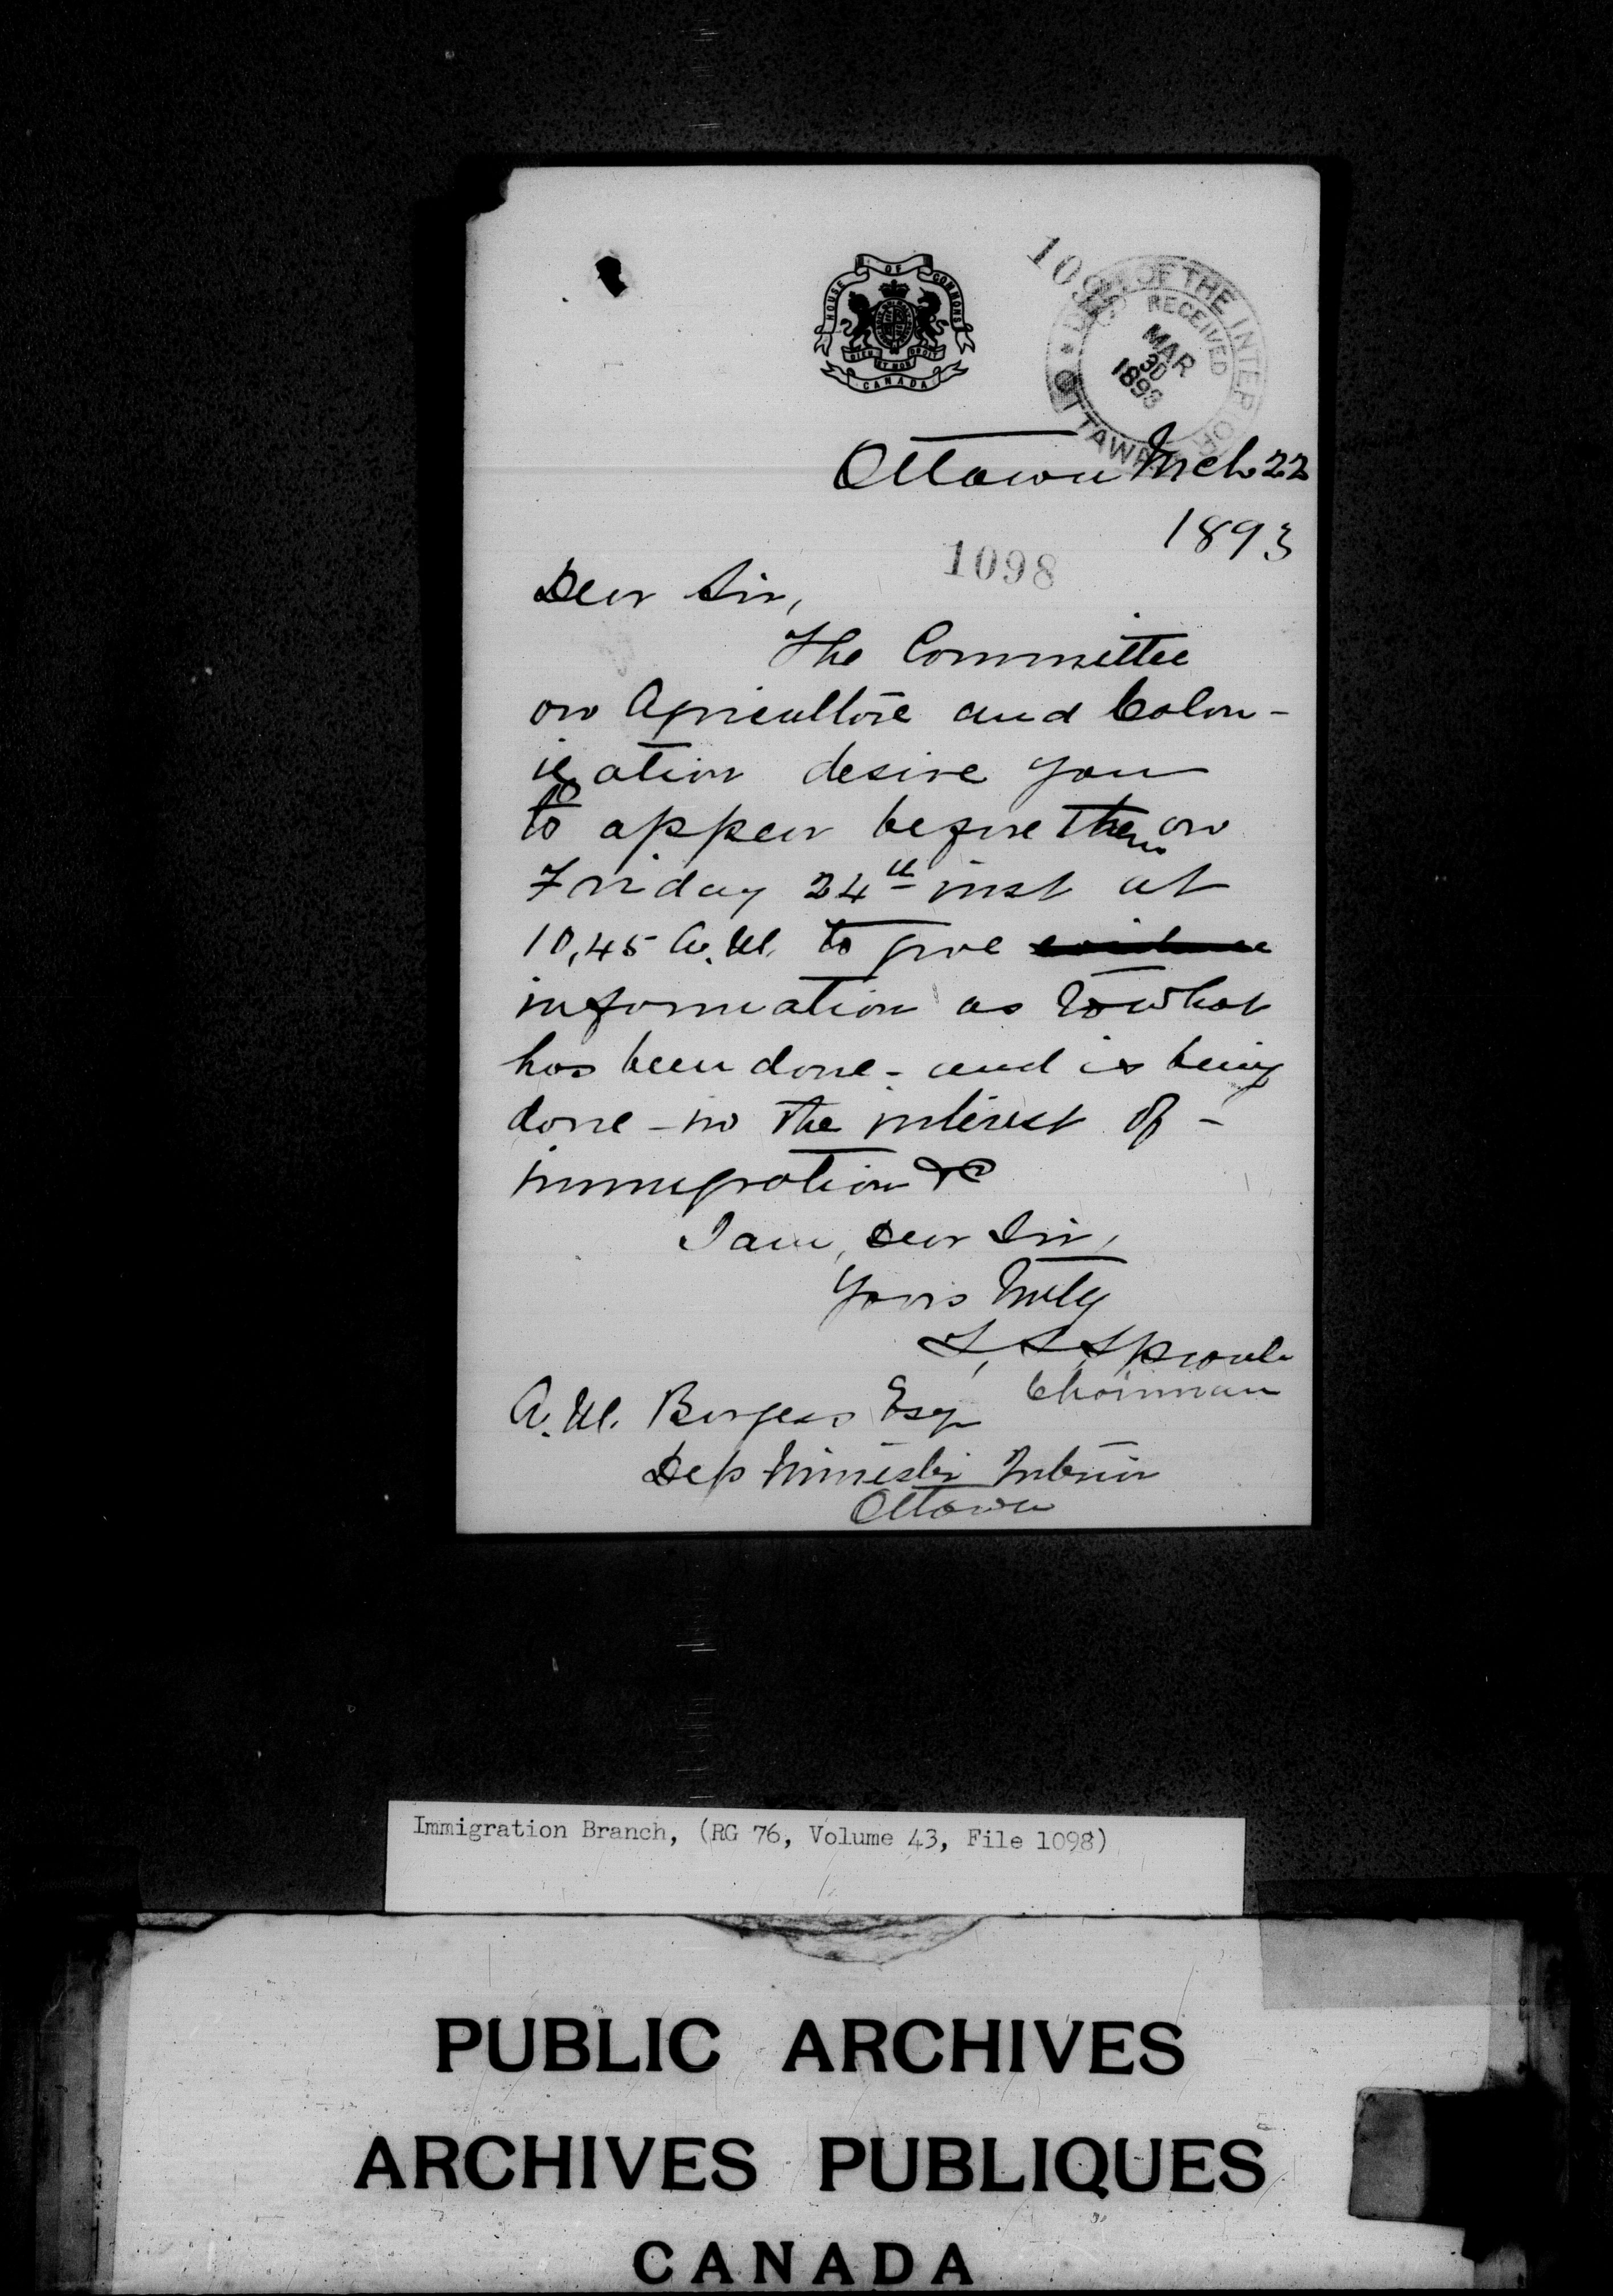 HOUSE OF COMMONS
DIEU ET MON DROIT
CANADA
1098
DEPT. OF THE INTERIOR
RECEIVED
MAR
30
1893
OTTAWA
Ottawa Mch 22
1893
1098
Dear Sir,
The Committee
on Agriculture and Colon-
ization desire you
to appear before them on
Friday 24th inst at
10,45 A.M. to give evidence
information as to what
has been done - and is being
done - in the interest of -
immigration &c
I am, Dear Sir,
Yours truly
T, S, Sproule
Chairman
A. M. Burgess Esq
Dep Minister Interior
Ottawa
Immigration Branch, (RG 76, Volume 43, File 1098)
PUBLIC ARCHIVES
ARCHIVES PUBLIQUES
CANADA